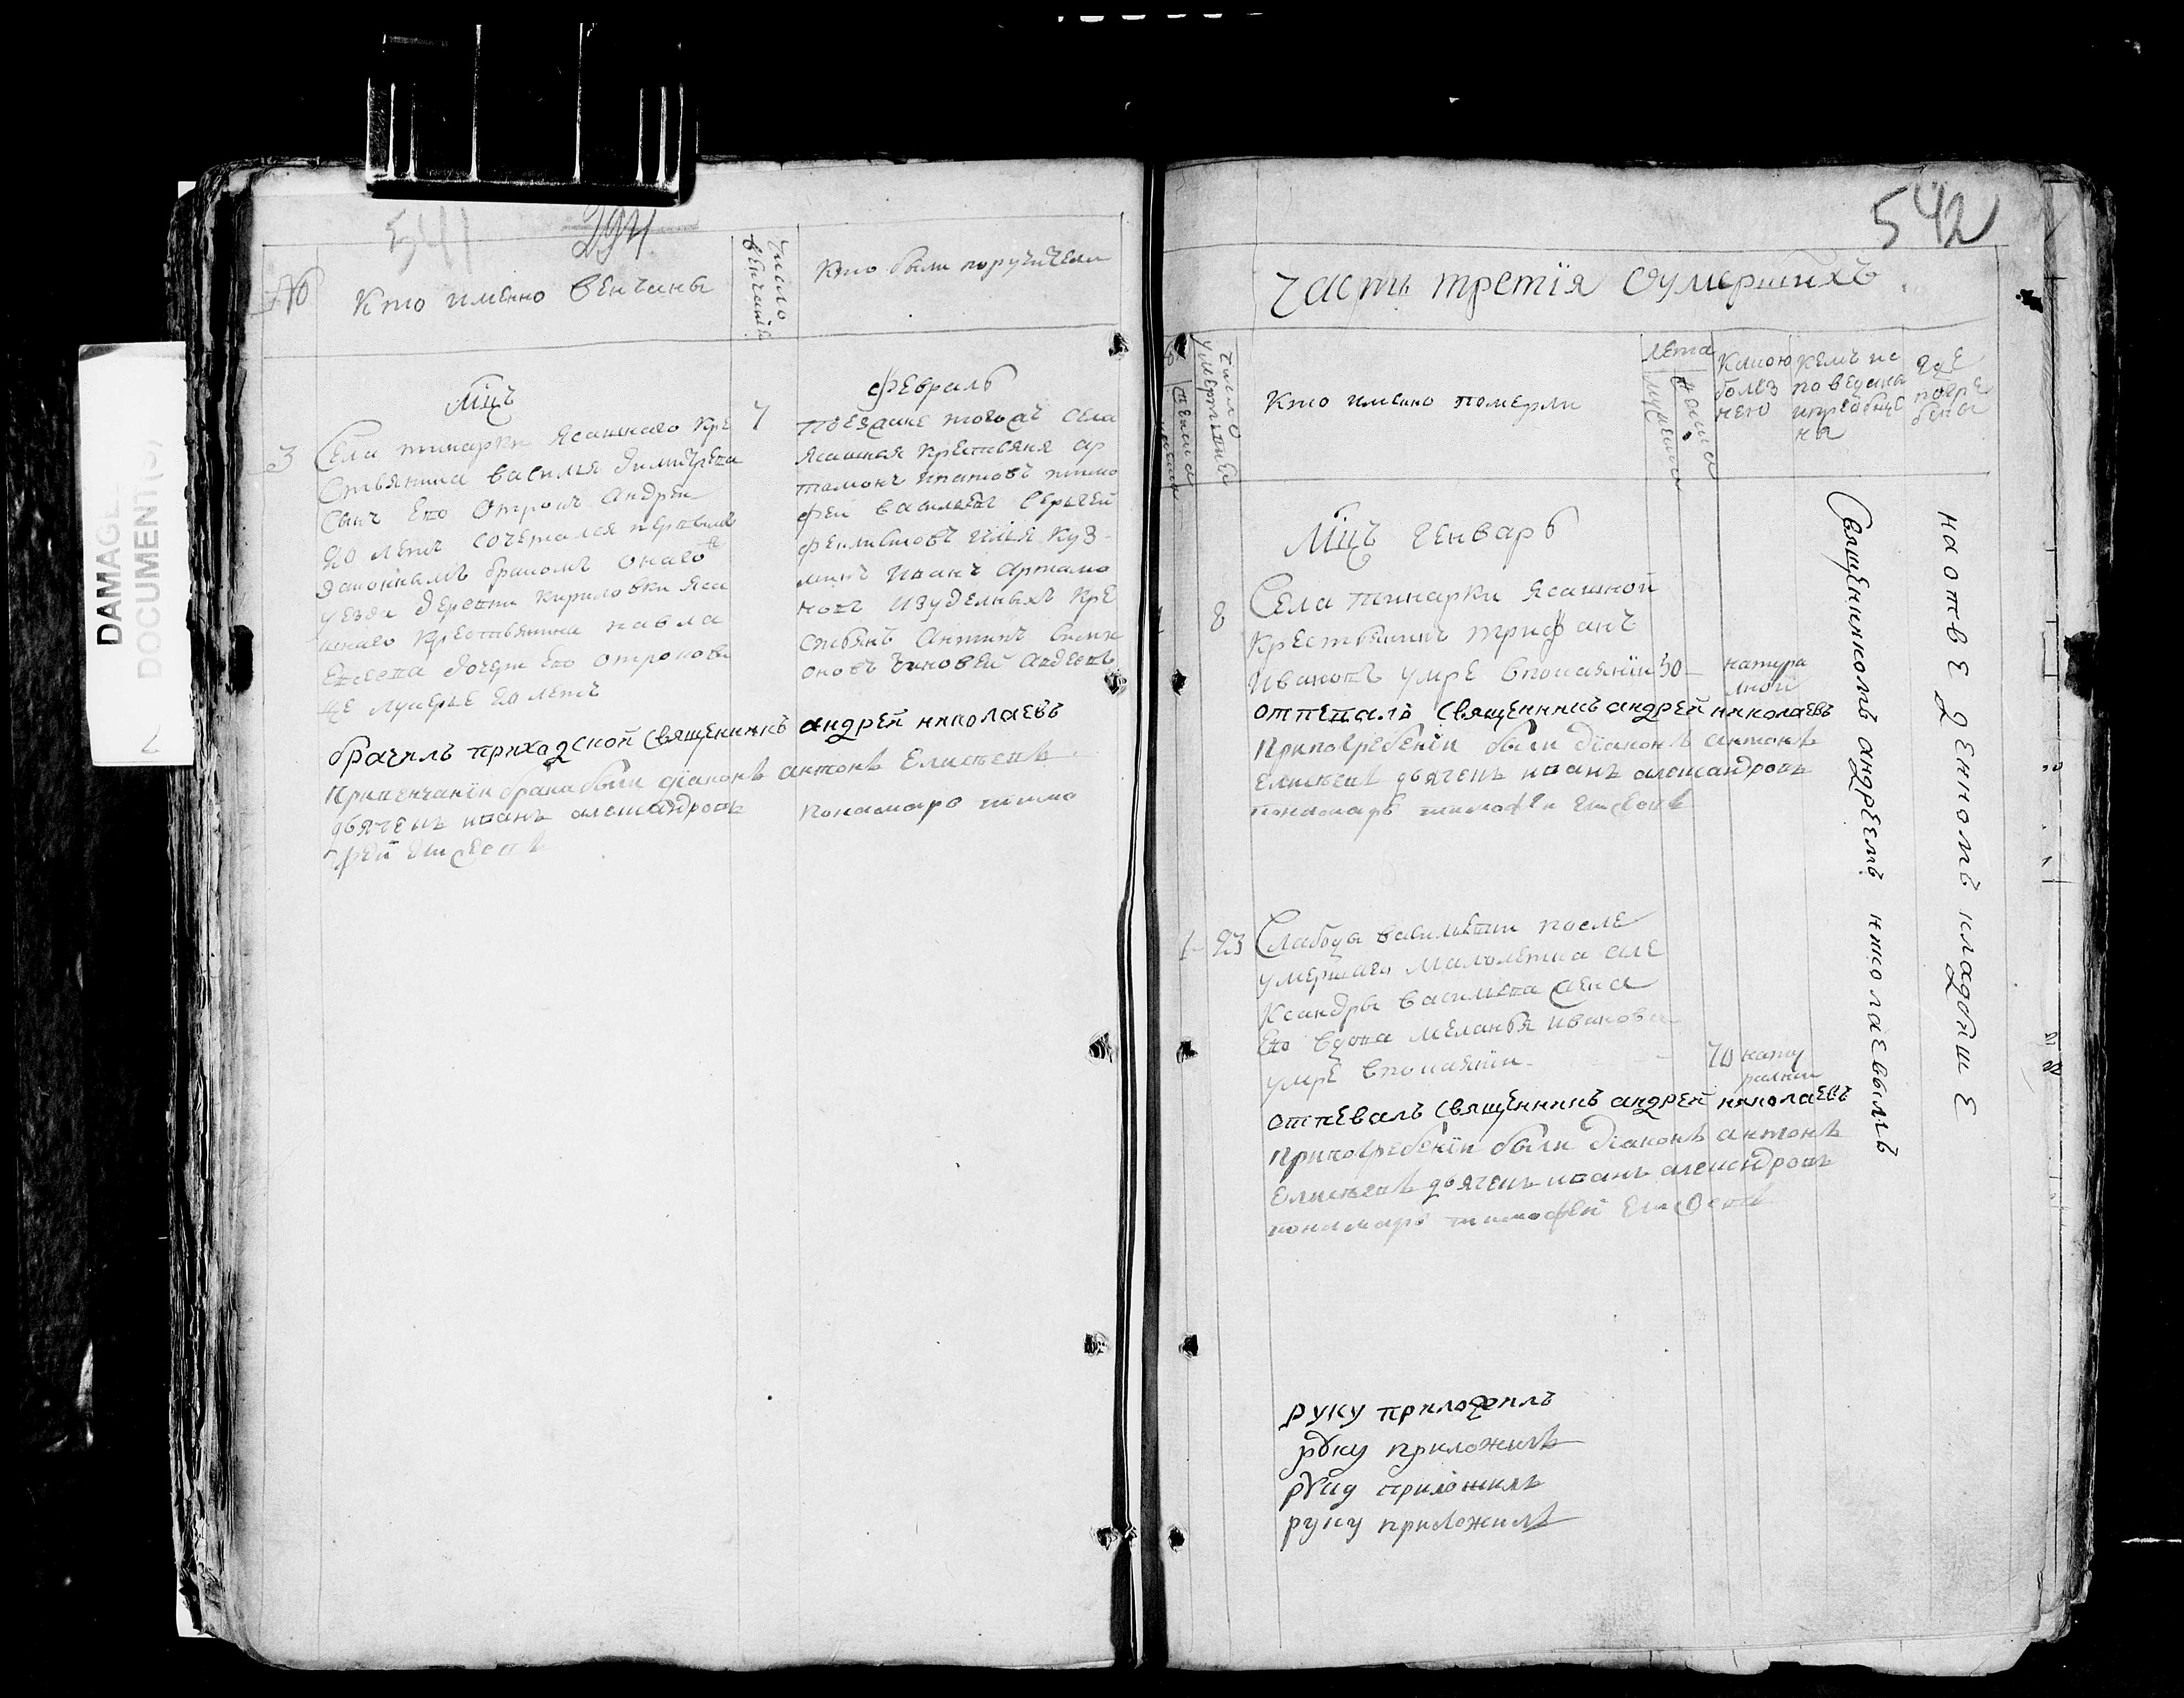 DAMAGE
DOCUMENT(S)
541
294
№
Кто именно венчаны
Число венчанія
Кто были поручители
Мцъ
февраль
3
7
Села тинарки Ясашнаго Кре
стьянина василья димитрева
Сынъ Ево отрокъ андрей
20 летъ сочетался первымъ
законнымъ бракомъ онаго
уезда деревни кириловки яса
шнаго крестьянина павла
дочерь Ево отрокови
це лукерье 20 летъ
поезжане тогожъ села
ясашныя крестьяня ар
тамонъ ипатовъ тимо
фей васильевъ Сергей
феклистовъ илья куз
минъ иванъ артамо
новъ изудельныхъ кре
стьянъ антипъ
оновъ зиновей авдеевъ
брачилъ приходской священникъ андрей николаевъ
Привенчаніи брака были діаконъ антонъ Елисеевъ
дьячекъ иванъ александровъ пономарь тимо
фей
542
часть третія оумершихъ
число умертвіи
Кто именно померли
лета
мужеска
женска
Какою
болез
нею
кемъ ис
поведаны
где
погре
бены
Мцъ генварь
8
Села тинарки ясашной
крестьянинъ трифанъ
ивановъ умре впокаяніи 50
натура
лной
отпевалъ священникъ андрей николаевъ
Припогребеніи были діаконъ антонъ
Елисеевъ дьячекъ иванъ александровъ
пономарь тимофеи
1 23
Слабоды васильевки после
умершаго малолетка але
ксандры васильева жена
Ево вдова меланья иванова
умре впокаяніи 70
нату
ралной
отпевалъ священникъ андрей николаевъ
Припогребеніи были діаконъ антонъ
Елисеевъ дьячекъ иванъ александровъ
пономарь тимофей
Священникомъ андреемъ николаевымъ
на отведенномъ кладбище
руку приложилъ
руку приложилъ
руку приложилъ
руку приложилъ